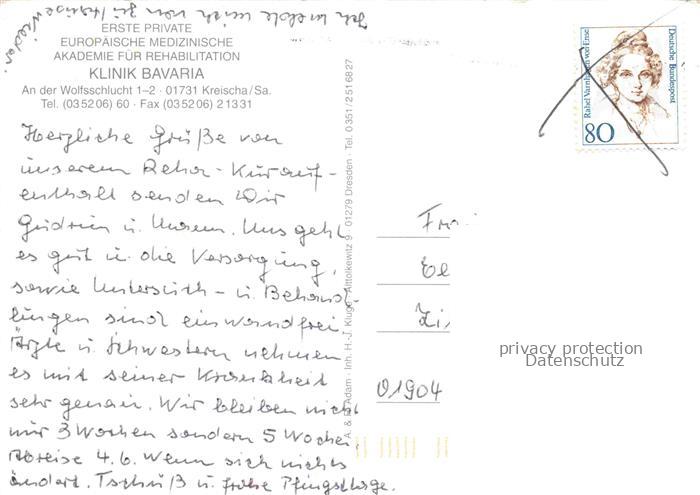 Ich melde mich von zu Hause wieder.
ERSTE PRIVATE
EUROPÄISCHE MEDIZINISCHE
AKADEMIE FÜR REHABILITATION
KLINIK BAVARIA
An der Wolfsschlucht 1–2 · 01731 Kreischa/Sa.
Tel. (03 52 06) 60 · Fax (03 52 06) 2 13 31
Herzliche Grüße von
unserem Reha-Kurauf-
enthalt senden Dir
Gudrun u. Mann. Uns geht
es gut u. die Versorgung,
sowie Untersuch- u. Behand-
lungen sind einwandfrei
Ärzte u. Schwestern nehmen
es mit seiner Krankheit
sehr genau. Wir bleiben nicht
nur 3 Wochen sondern 5 Wochen.
Abreise 4.6. wenn sich nichts
ändert. Tschüß u. frohe Pfingsttage.
A. & R. Adam · Inh. H.-J. Kluge · Altlockwitz 9 · 01279 Dresden · Tel. 03 51/2 51 68 27
Rahel Varnhagen von Ense
Deutsche Bundespost
80
01904
privacy protection
Datenschutz